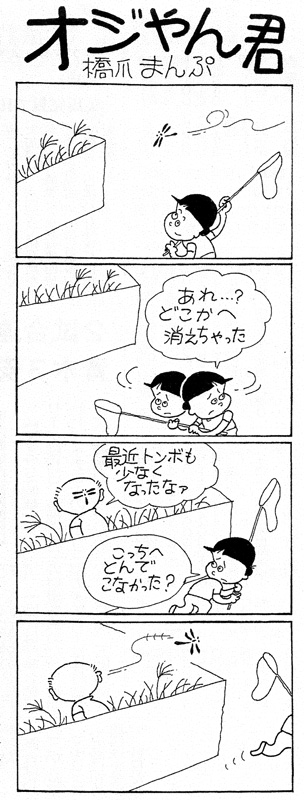 オジやん君
橋爪まんぷ
あれ…?
どこかへ
消えちゃった
最近トンボも
少なく
なったなァ
こっちへ
とんで
こなかった?